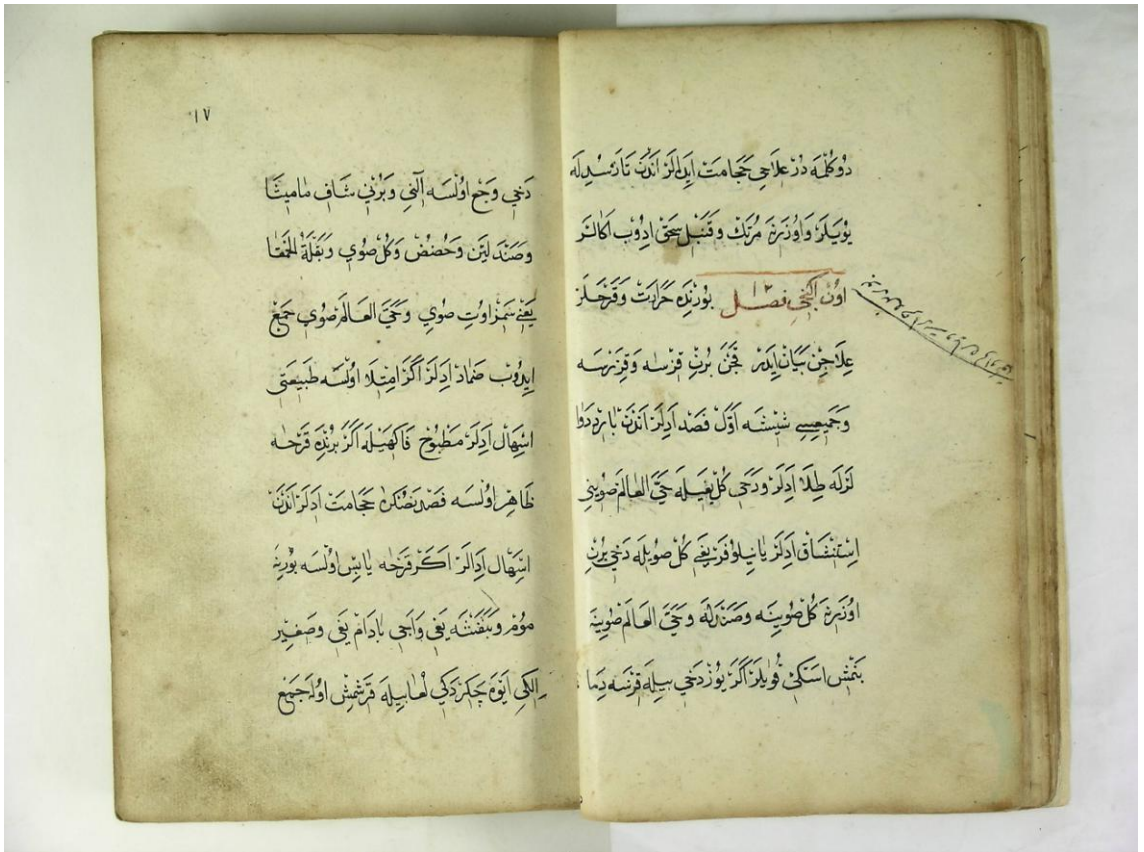 دوكلمه در علاجى حجامت ايدالر اندن
يويلر و اوزرنه مرتك وقنبل سحق ادوب اكا اكر
اون ايكنجى فصل ١٢ بورنده حرارت وقرحلر
علاجن بيان ايدر قچن برن قزسه وقزنرسه
وجميعيسى شيشسه اول فصد ادلر اندن بارد دوا
لرله طلا ادلر ودخى كل يغيله حى العالم صوينى
استنشاق ادلر يا نيلوفر يغى كل صويله دخى برن
اوزرنه كل صوينه وصندله وحى العالم صوينه
بتمش اسكى قويلر اكر يوز دخى بيله قزسه دما
١٧
دخى وجع اولسه النى وبرنى شاف ماميثا
وصندلين وحضض وكل صوى وبقلة الحمقا
يعنى سمز اوت صوى وحى العالم صوى جمع
ايدوب ضماد ادلر اكر امتلا اولسه طبيعتى
اسهال ادلر مطبوخ فاكهيله اكر برنده قرحه
ظاهر اولسه فصد نصكره حجامت ادلر اندن
اسهال ادالر اكر قرحه يابس اولسه بورنه
موم وبنفشه يغى واجى بادام يغى وصغير
الكى ايوه چكردكى لعابيله قرشمش اوله جمع